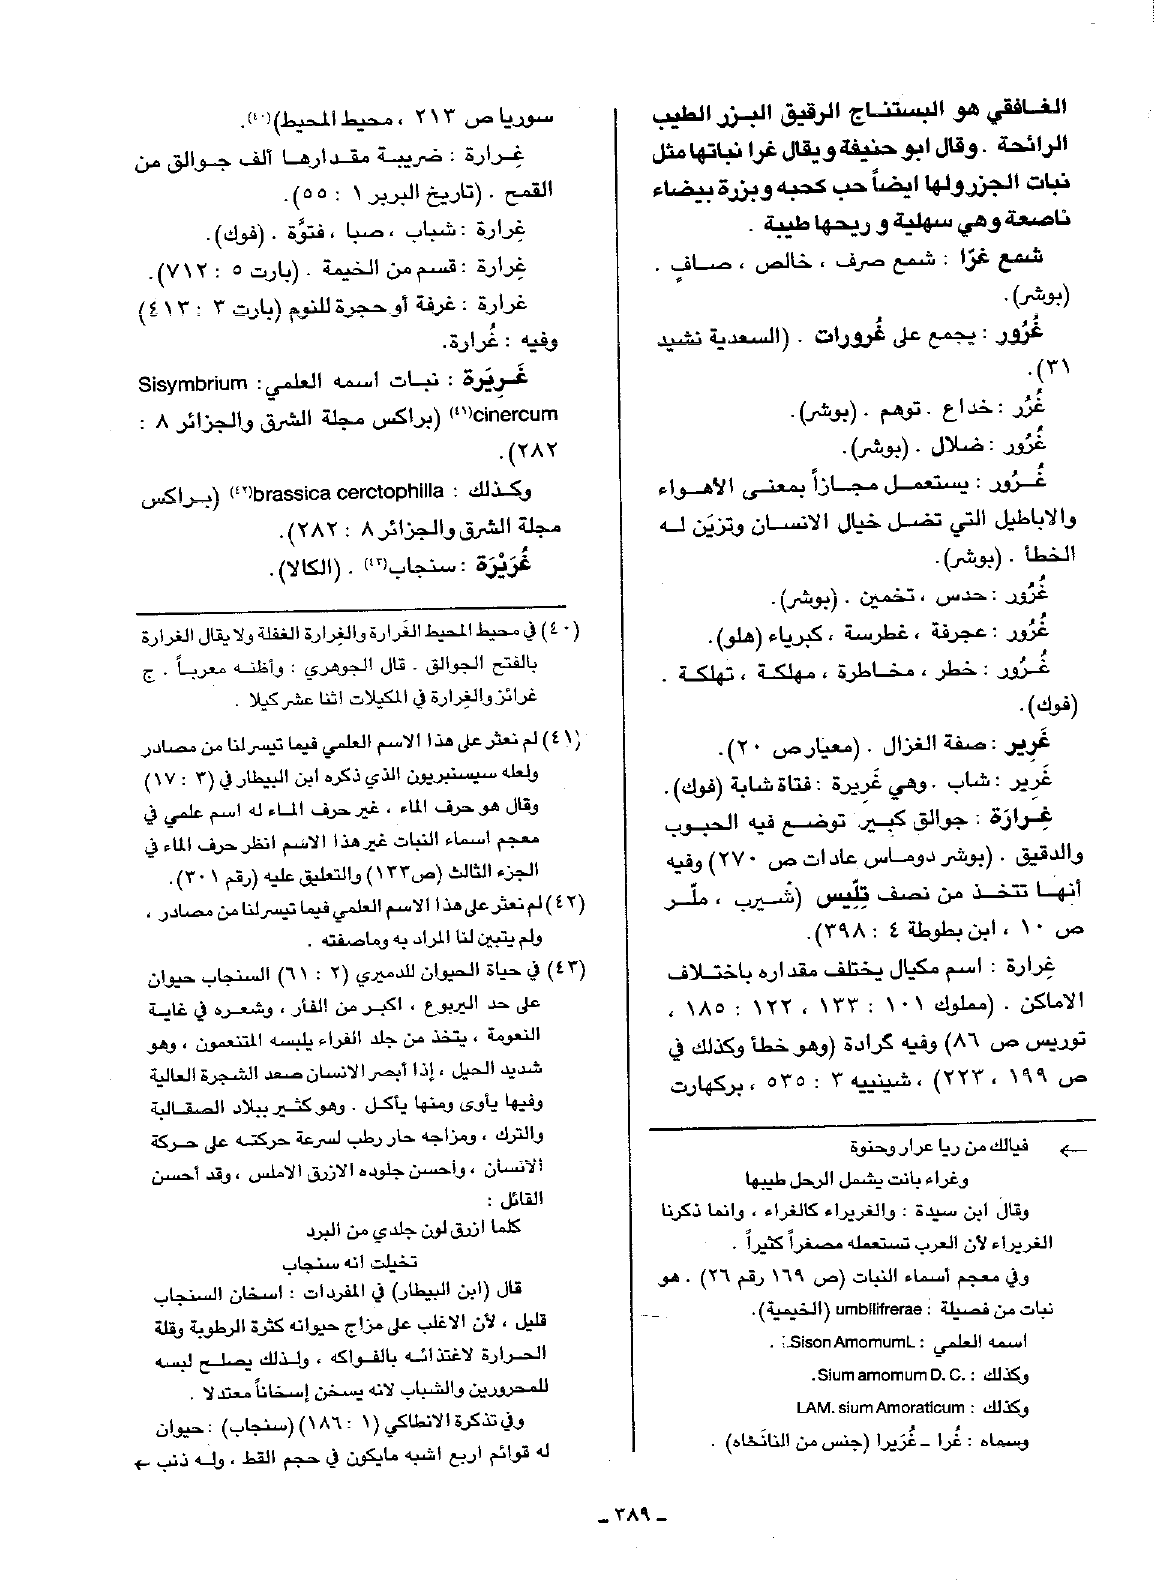 الغافقي هو البستناج الرقيق البزر الطيب
الرائحة . وقال ابو حنيفة ويقال غرا نباتها مثل
نبات الجزر ولها ايضاً حب كحبه وبزرة بيضاء
ناصعة وهي سهلية وريحها طيبة .
شمع غرّا : شمع صرف ، خالص ، صافٍ .
(بوشر).
غُرُور : يجمع على غُرورات . (السعدية نشيد
٣١).
غُرُر : خداع . توهم . (بوشر).
غُرُور : ضلال . (بوشر).
غُرُور : يستعمل مجازاً بمعنى الاهواء
والاباطيل التي تضل خيال الانسان وتزين له
الخطأ . (بوشر).
غُرُور : حدس ، تخمين . (بوشر).
غُرُور : عجرفة ، غطرسة ، كبرياء (هلو).
غُرُور : خطر ، مخاطرة ، مهلكة ، تهلكة .
(فوك).
غَرِير : صفة الغزال . (معيار ص ٢٠).
غَرِير : شاب . وهي غَرِيرة : فتاة شابة (فوك).
غِرارَة : جوالق كبير توضع فيه الحبوب
والدقيق . (بوشر دوماس عادات ص ٢٧٠) وفيه
أنها تتخذ من نصف تِلِّيس (شُيرب ، ملّر
ص ١٠ ، ابن بطوطة ٤ : ٣٩٨).
غرارة : اسم مكيال يختلف مقداره باختلاف
الاماكن . (مملوك ١٠١ : ١٣٣ ، ١٢٢ : ١٨٥ ،
توريس ص ٨٦) وفيه گرادة (وهو خطأ وكذلك في
ص ١٩٩ ، ٢٢٣) ، شينييه ٣ : ٥٣٥ ، بركهارت
← فيالك من ريا عرار وحنوة
وغراء باتت يشمل الرحل طيبها
وقال ابن سيدة : والغريراء كالغراء ، وانما ذكرنا
الغريراء لأن العرب تستعمله مصغراً كثيراً .
وفي معجم أسماء النبات (ص ١٦٩ رقم ٢٦) . هو
نبات من فصيلة : umbllifrerae (الخيمية).
اسمه العلمي : Sison AmomumL.
وكذلك : Sium amomum D. C.
وكذلك : LAM. sium Amoraticum
وسماه : غُرا - غُرَيرا (جنس من النانْخاه) .
سوريا ص ٢١٣ ، محيط المحيط)(٤٠).
غِرارة : ضريبة مقدارها ألف جوالق من
القمح . (تاريخ البربر ١ : ٥٥).
غِرارة : شباب ، صبا ، فتوَّة . (فوك).
غِرارة : قسم من الخيمة . (بارت ٥ : ٧١٢).
غرارة : غرفة أو حجرة للنوم (بارت ٣ : ٤١٣)
وفيه : غُرارة.
غَرِيَرة : نبات اسمه العلمي: Sisymbrium
cinercum(٤١) (براكس مجلة الشرق والجزائر ٨ :
٢٨٢).
وكذلك : brassica cerctophilla(٤٢) (براكس
مجلة الشرق والجزائر ٨ : ٢٨٢).
غُرَيْرَة : سنجاب(٤٣) . (الكالا).
(٤٠) في محيط المحيط الغَرارة والغِرارة الغفلة ولا يقال الغرارة
بالفتح الجوالق . قال الجوهري : وأظنه معرباً . ج
غرائز والغرارة في المكيلات اثنا عشر كيلا .
(٤١) لم نعثر على هذا الاسم العلمي فيما تيسر لنا من مصادر
ولعله سيسنبريون الذي ذكره ابن البيطار في (٣ : ١٧)
وقال هو حرف الماء ، غير حرف الماء له اسم علمي في
معجم اسماء النبات غير هذا الاسم انظر حرف الماء في
الجزء الثالث (ص١٣٣) والتعليق عليه (رقم ٣٠١).
(٤٢) لم نعثر على هذا الاسم العلمي فيما تيسر لنا من مصادر ،
ولم يتبين لنا المراد به وماصفته .
(٤٣) في حياة الحيوان للدميري (٢ : ٦١) السنجاب حيوان
على حد اليربوع ، اكبر من الفأر ، وشعره في غاية
النعومة ، يتخذ من جلد الفراء يلبسه المتنعمون ، وهو
شديد الحيل ، إذا أبصر الانسان صعد الشجرة العالية
وفيها يأوى ومنها يأكل . وهو كثير ببلاد الصقالبة
والترك ، ومزاجه حار رطب لسرعة حركته على حركة
الانسان ، وأحسن جلوده الازرق الاملس ، وقد أحسن
القائل :
كلما ازرق لون جلدي من البرد
تخيلت انه سنجاب
قال (ابن البيطار) في المفردات : اسخان السنجاب
قليل ، لأن الاغلب على مزاج حيوانه كثرة الرطوبة وقلة
الحرارة لاغتذائه بالفواكه ، ولذلك يصلح لبسه
للمحرورين والشباب لانه يسخن إسخاناً معتدلا .
وفي تذكرة الانطاكي (١ : ١٨٦) (سنجاب) : حيوان
له قوائم اربع اشبه مايكون في حجم القط ، وله ذنب ←
- ٣٨٩ -